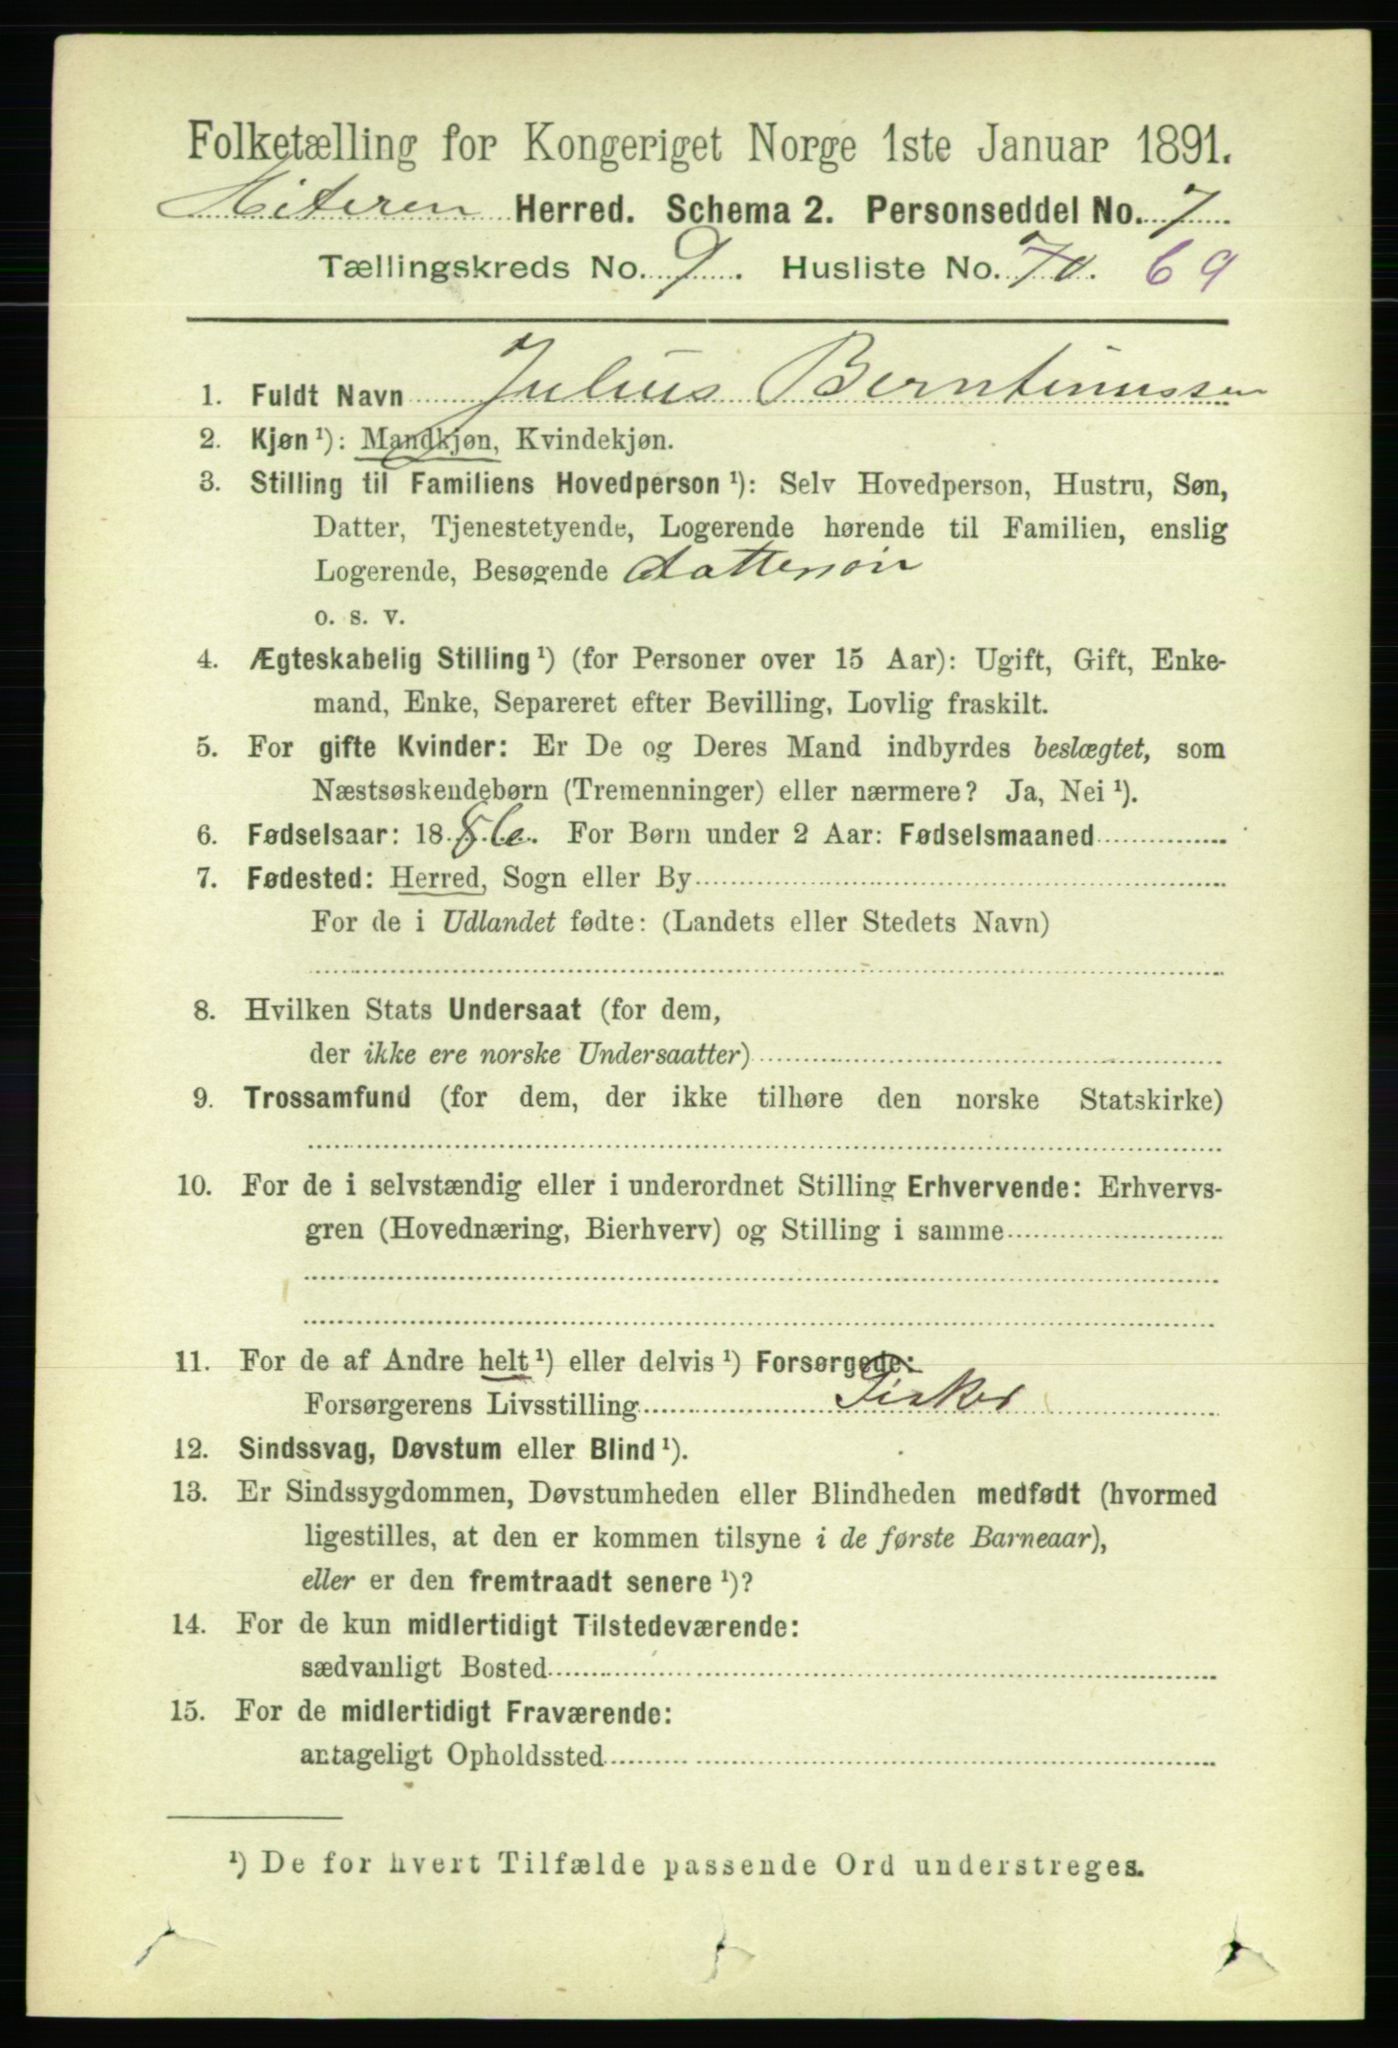 Folketælling for Kongeriget Norge 1ste Januar 1891.
Hiteren Herred. Schema 2. Personseddel No. 7
Tællingskreds No. 9. Husliste No. 70. 69
1. Fuldt Navn Julius Berntinussen
2. Kjøn ¹): Mandkjøn, Kvindekjøn.
3. Stilling til Familiens Hovedperson ¹): Selv Hovedperson, Hustru, Søn,
Datter, Tjenestetyende, Logerende hørende til Familien, enslig
Logerende, Besøgende dattersøn
o. s. v.
4. Ægteskabelig Stilling ¹) (for Personer over 15 Aar): Ugift, Gift, Enke-
mand, Enke, Separeret efter Bevilling, Lovlig fraskilt.
5. For gifte Kvinder: Er De og Deres Mand indbyrdes beslægtet, som
Næstsøskendebørn (Tremenninger) eller nærmere? Ja, Nei ¹).
6. Fødselsaar: 1886. For Børn under 2 Aar: Fødselsmaaned
7. Fødested: Herred, Sogn eller By
For de i Udlandet fødte: (Landets eller Stedets Navn)
8. Hvilken Stats Undersaat (for dem,
der ikke ere norske Undersaatter)
9. Trossamfund (for dem, der ikke tilhøre den norske Statskirke)
10. For de i selvstændig eller i underordnet Stilling Erhvervende: Erhvervs-
gren (Hovednæring, Bierhverv) og Stilling i samme
11. For de af Andre helt ¹) eller delvis ¹) Forsørgede:
Forsørgerens Livsstilling Fisker
12. Sindssvag, Døvstum eller Blind ¹).
13. Er Sindssygdommen, Døvstumheden eller Blindheden medfødt (hvormed
ligestilles, at den er kommen tilsyne i de første Barneaar),
eller er den fremtraadt senere ¹)?
14. For de kun midlertidigt Tilstedeværende:
sædvanligt Bosted
15. For de midlertidigt Fraværende:
antageligt Opholdssted
¹) De for hvert Tilfælde passende Ord understreges.